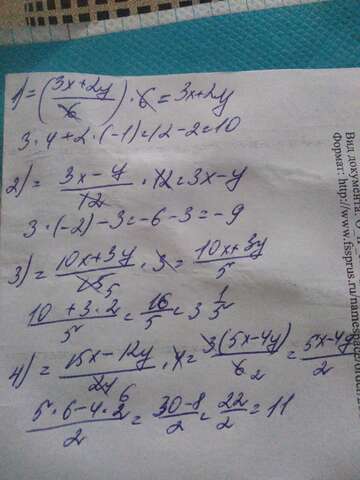 1) = (3x+2y/6) · 6 = 3x+2y
3·4+2·(-1)=12-2=10
2) = 3x-y/12 · 12=3x-y
3·(-2)-3=-6-3=-9
3) = 10x+3y/15 5 · 3 = 10x+3y/5
10+3·2/5 = 16/5 = 3 1/5
4) = 15x-12y/24 6 · 4 = 3(5x-4y)/6 2 = 5x-4y/2
5·6-4·2/2 = 30-8/2 = 22/2 = 11
Вид документа
Формат: http:
//www.fsprus.ru/